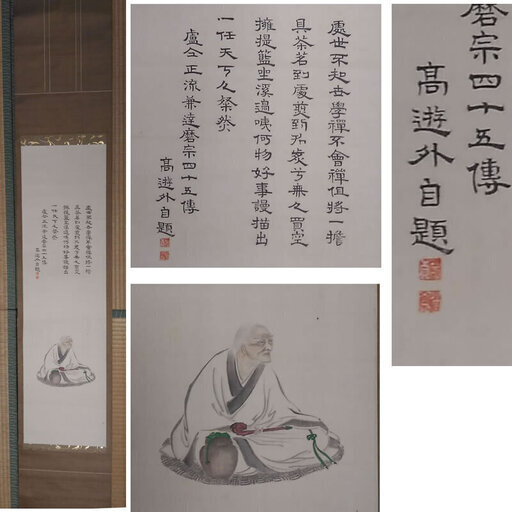 處世不起世學禪不會禪但將一擔
具茶茗到處煎到處煎兮無人買空
擁提籃坐溪邊咦何物好事謾描出
一任天下人粲然
盧仝正流兼達磨宗四十五傳
高遊外自題
磨宗四十五傳
高遊外自題